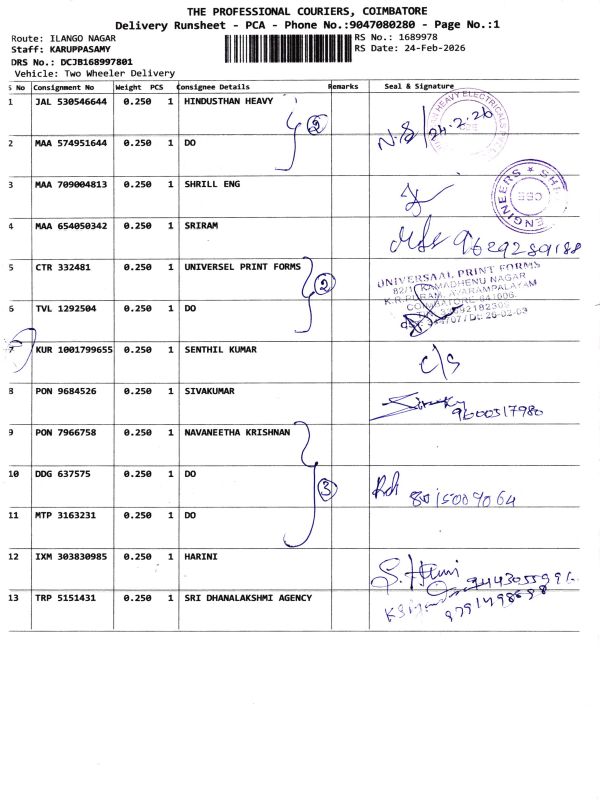 THE PROFESSIONAL COURIERS, COIMBATORE
Delivery Runsheet - PCA - Phone No.:9047080280 - Page No.:1
Route: ILANGO NAGAR
RS No.: 1689978
Staff: KARUPPASAMY
RS Date: 24-Feb-2026
DRS No.: DCJB168997801
Vehicle: Two Wheeler Delivery
S No Consignment No Weight PCS Consignee Details Remarks Seal & Signature
1 JAL 530546644 0.250 1 HINDUSTHAN HEAVY
2 24.2.26
2 MAA 574951644 0.250 1 DO
3 MAA 709004813 0.250 1 SHRILL ENG
ENGINEERS
4 MAA 654050342 0.250 1 SRIRAM
5 CTR 332481 0.250 1 UNIVERSEL PRINT FORMS
2
UNIVERSAAL PRINT FORMS
82/1, KAMADHENU NAGAR
K.R.PURAM, AVARAMPALAYAM
COIMBATORE 641006
6 TVL 1292504 0.250 1 DO
7 KUR 1001799655 0.250 1 SENTHIL KUMAR
c/s
8 PON 9684526 0.250 1 SIVAKUMAR
9600517980
9 PON 7966758 0.250 1 NAVANEETHA KRISHNAN
10 DDG 637575 0.250 1 DO
3
8015009064
11 MTP 3163231 0.250 1 DO
12 IXM 303830985 0.250 1 HARINI
13 TRP 5151431 0.250 1 SRI DHANALAKSHMI AGENCY